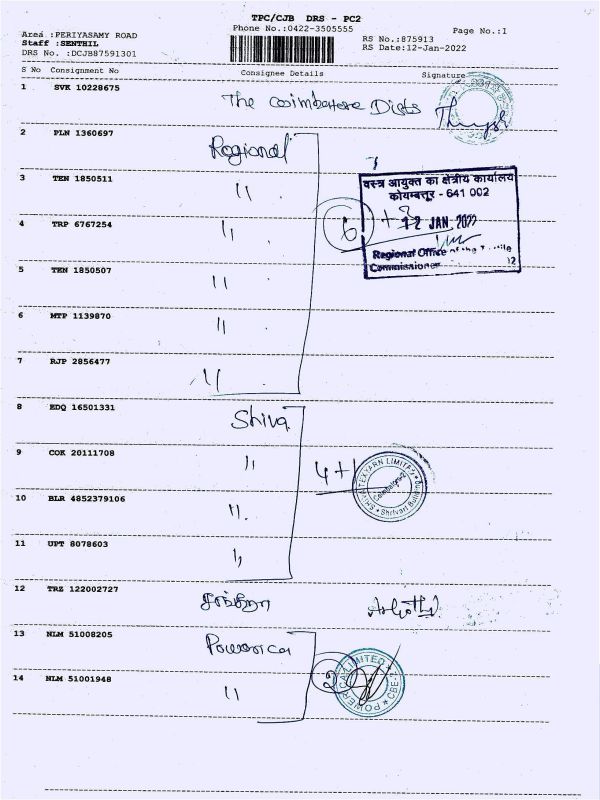 TPC/CJB DRS - PC2
Phone No.:0422-3505555
Page No.:1
Area :PERIYASAMY ROAD
Staff :SENTHIL
DRS No. :DCJB87591301
RS No.:875913
RS Date:12-Jan-2022
S No Consignment No Consignee Details Signature
1 SVK 10228675 The Coimbatore Dists
2 PLN 1360697 Regional
3 TEN 1850511 "
4 TRP 6767254 "
5 TEN 1850507 "
6 MTP 1139870 "
7 RJP 2856477 "
वस्त्र आयुक्त का क्षेत्रीय कार्यालय
कोयम्बत्तूर - 641 002
6 +
12 JAN 2022
Regional Office of the Textile
Commissioner
8 EDQ 16501331 Shiva
9 COK 20111708 "
4+1
10 BLR 4852379106 "
11 UPT 8078603 "
12 TRZ 122002727
13 NLM 51008205 Powerica
14 NLM 51001948 "
2
POWERICA LIMITED
CBE